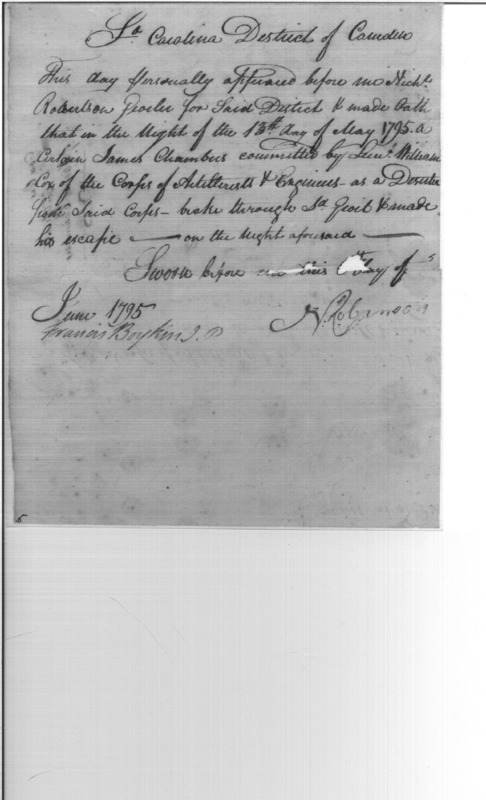 So Carolina District of Camden
This day Personally appeared before me Nichs.
Robertson Goaler for Said District & made Oath
that in the Night of the 13th day of May 1795. a
Certain James Chambers committed by Lieut. William
Cox of the Corps of Artillerists & Engineers - as a Deserter
from Said Corps - broke through Sd. Goal & made
his escape — on the Night aforesaid —
Sworn before me this day of
June 1795
Francis Boykin J. P
N. Robertson